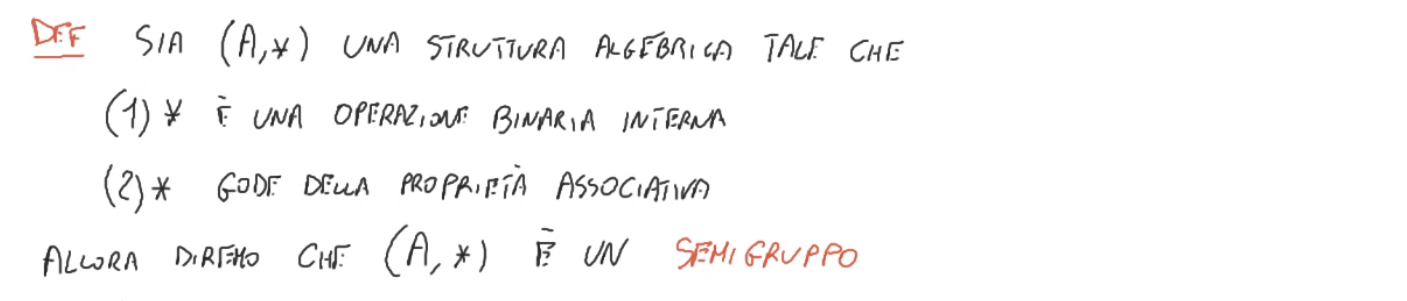 DEF SIA (A,*) UNA STRUTTURA ALGEBRICA TALE CHE
(1) * È UNA OPERAZIONE BINARIA INTERNA
(2) * GODE DELLA PROPRIETÀ ASSOCIATIVA
ALLORA DIREMO CHE (A,*) È UN SEMIGRUPPO